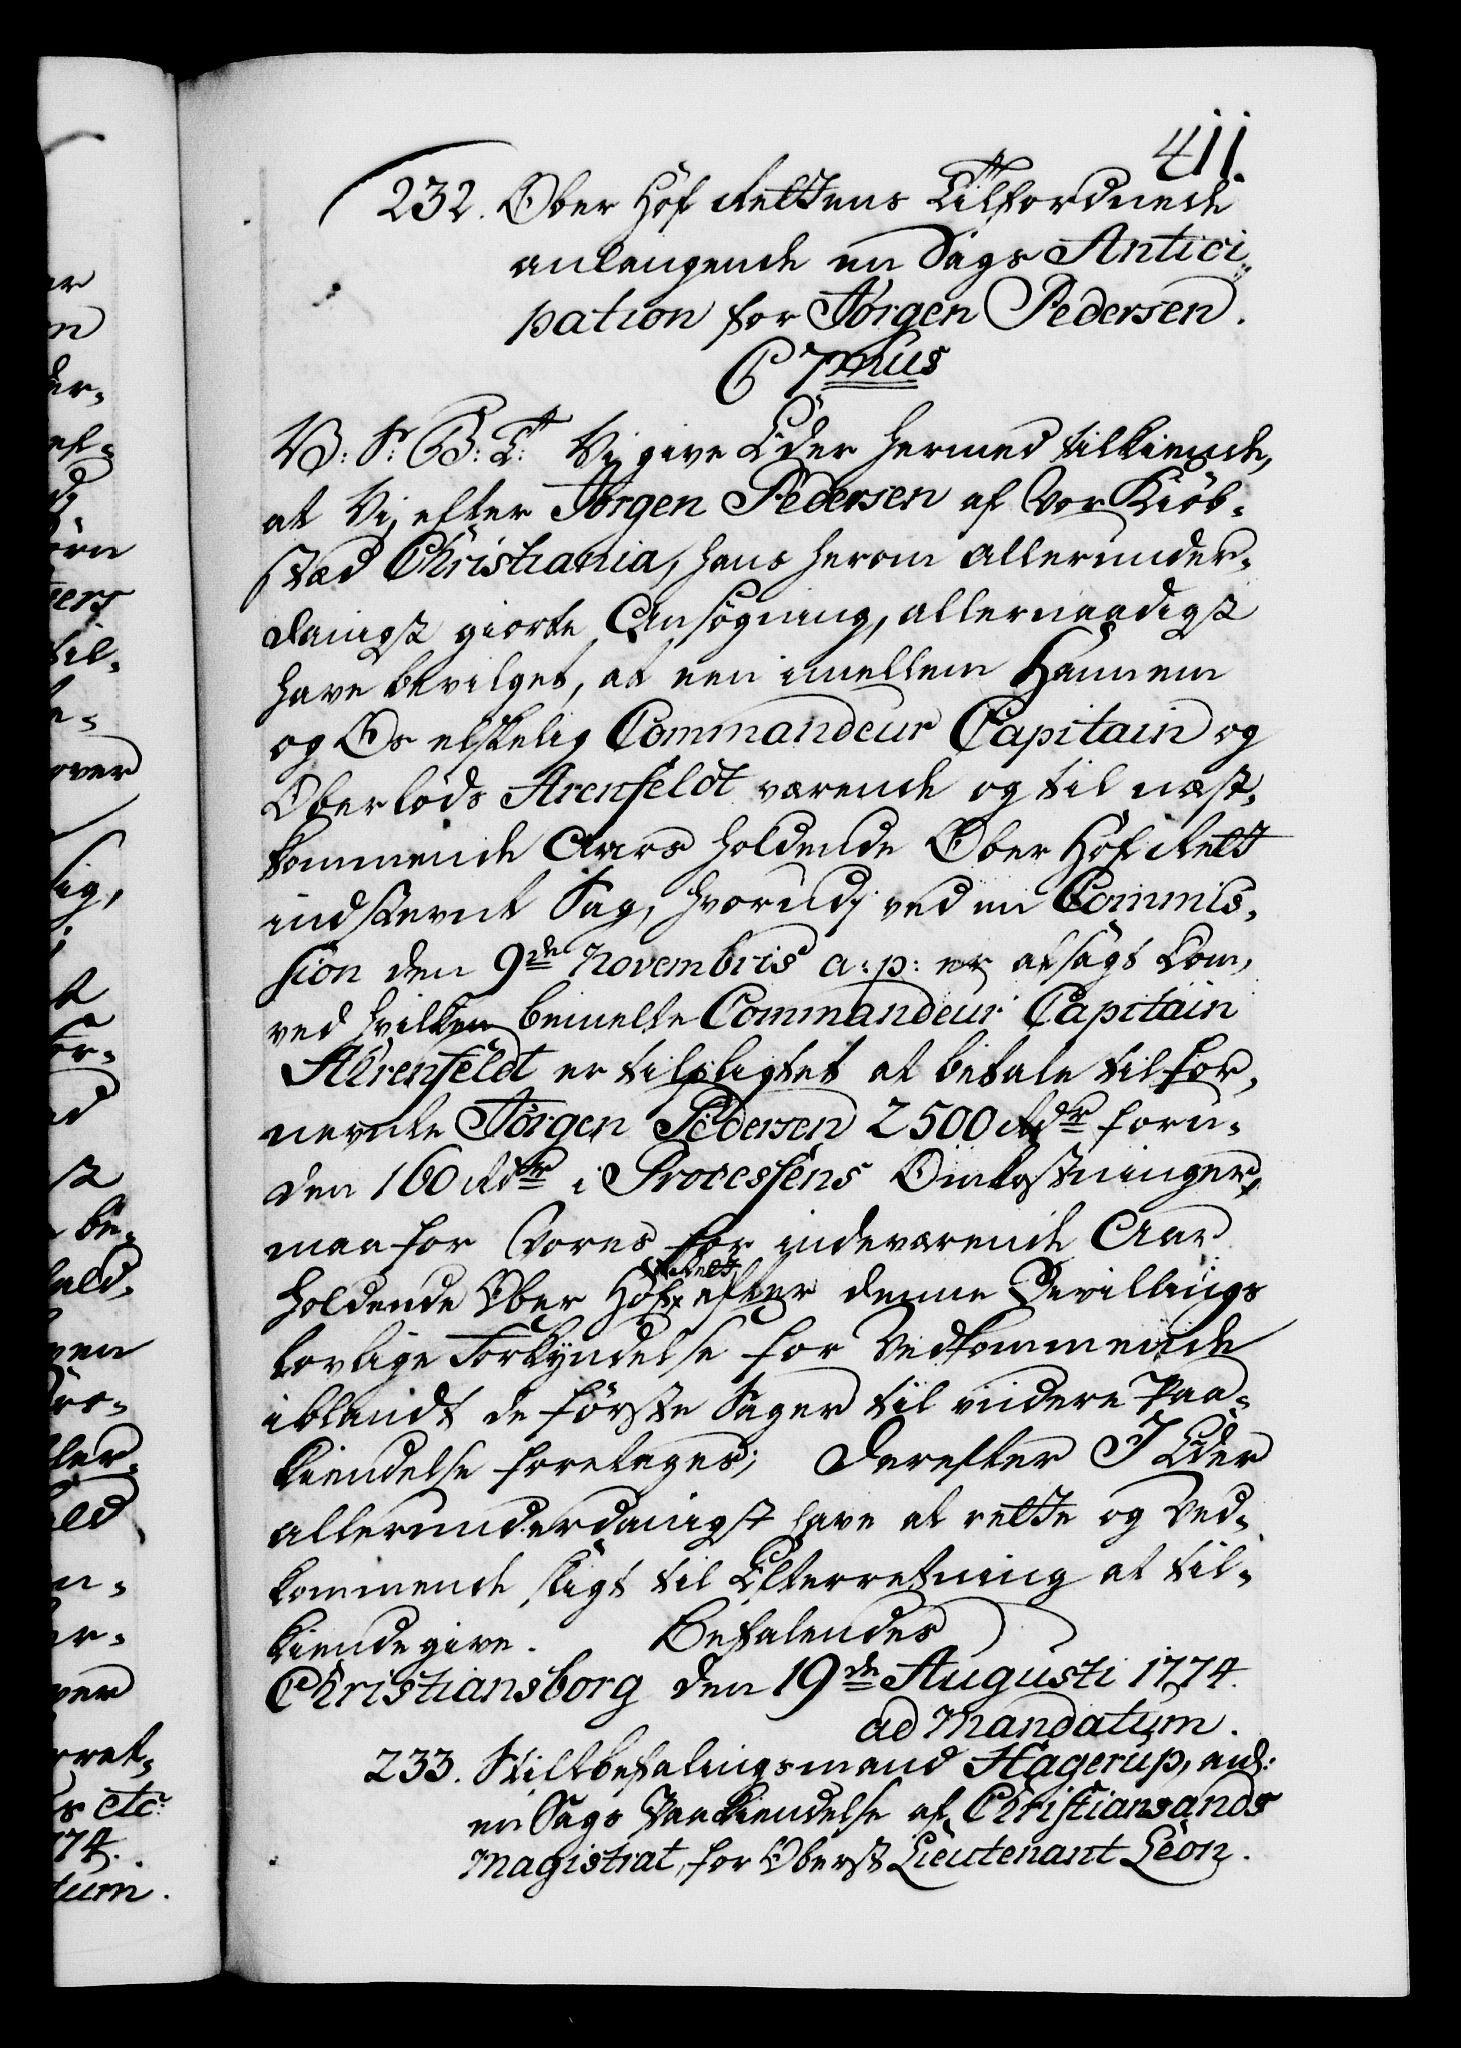 411.
232. Ober Hof Rettens Tilforordnede
anlangende en Sags Antici-
pation for Jørgen Pedersen.
C 7mus
V: S: G: T: Vi give Eder hermed tilkiende,
at Vi, efter Jørgen Pedersen af Vor Kiøb-
stad Christiania, hans herom allerunder-
danigst giorte Ansøgning, allernaadigst
have bevilget, at een imellem Hannem
og Os elskelig Commandeur Capitain og
Oberlods Arenfeldt værende og til næst-
kommende Aars holdende Ober Hof Rett
indstevnt Sag, hvorudj ved en Commis-
sion den 9de Novembris a: p: er afsagt Dom,
ved hvilken bemelte Commandeur Capitain
Ahrenfeldt er tilpligtet at betale til for-
nevnte Jørgen Pedersen 2500 Rdr foru-
den 160 Rdr i Processens Omkostninger,
maa for Vores for indeværende Aar
holdende Ober Hof Rett efter denne Bevillings
lovlige Forkyndelse for Vedkommende
iblandt de første Sager til videre Paa-
kiendelse foretages; Derefter I Eder
allerunderdanigst have at rette og Ved-
kommende sligt til Efterretning at til-
kiendegive. Befalendes
Christiansborg den 19de Augusti 1774.
ad Mandatum.
233. Stiftbefalingsmand Hagerup, anl:
en Sags Paakiendelse af Christiansands
Magistrat, for Oberst Lieutenant Leon.